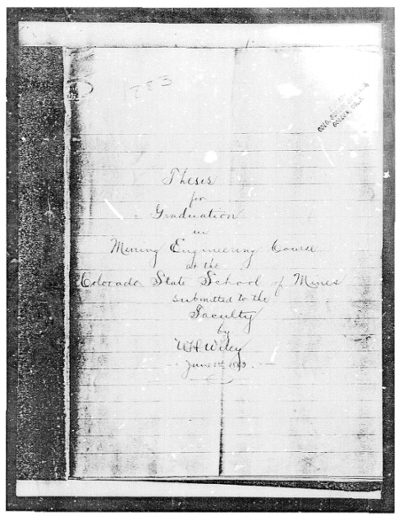 Thesis
for
Graduation
in
Mining Engineering Course
at the
Colorado State School of Mines
submitted to the
Faculty
by
W H Wiley
June